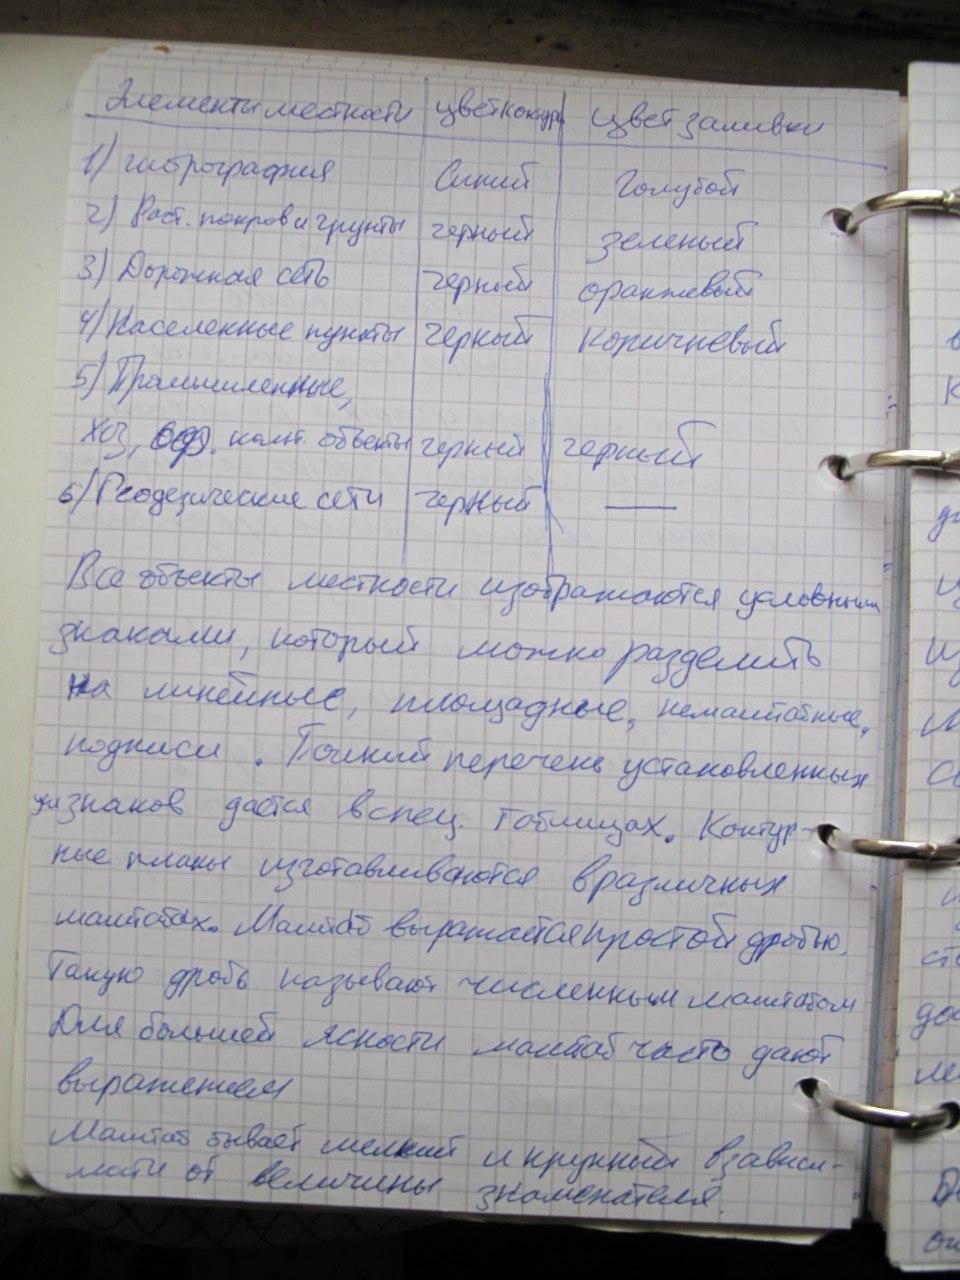 Элементы местности цвет контура цвет заливки
1) гидрография Синий Голубой
2) Раст. покров и грунты черный зеленый
3) Дорожная сеть черный оранжевый
4) Населенные пункты черный коричневый
5) Промышленные,
хоз, объекты черный черный
6) Геодезические сети черный —
Все объекты местности изображаются условными
знаками, который можно разделить
на линейные, площадные, немаштабные,
подписи. Точный перечень установленных
знаков дается в спец. таблицах. Контур-
ные планы изготавливаются в различных
маштабах. Маштаб выражается простой дробью.
Такую дробь называют численным маштабом
Для большей ясности маштаб часто дают
выражением
Маштаб бывает мелкий и крупный в зависи-
мости от величины знаменателя.